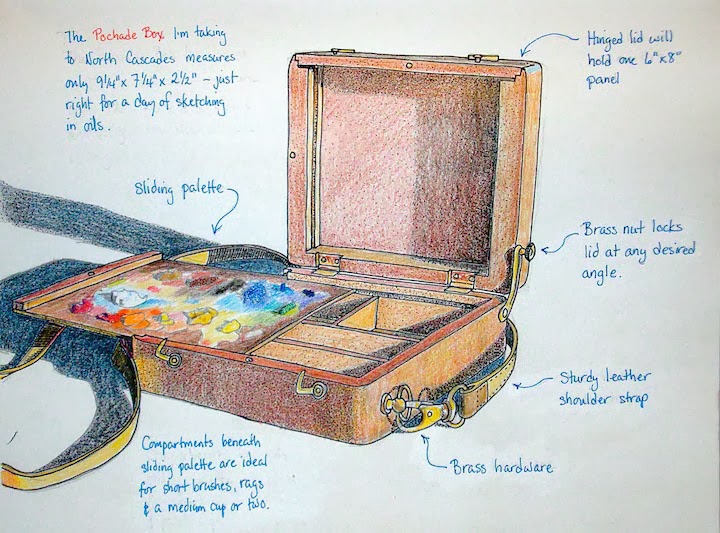 The Pochade Box I'm taking
to North Cascades measures
only 9 1/4" x 7 1/4" x 2 1/2" – just
right for a day of sketching
in oils.
Hinged lid will
hold one 6"x8"
panel
Sliding palette
Brass nut locks
lid at any desired
angle.
Sturdy leather
shoulder strap
Compartments beneath
sliding palette are ideal
for short brushes, rags
& a medium cup or two.
Brass hardware